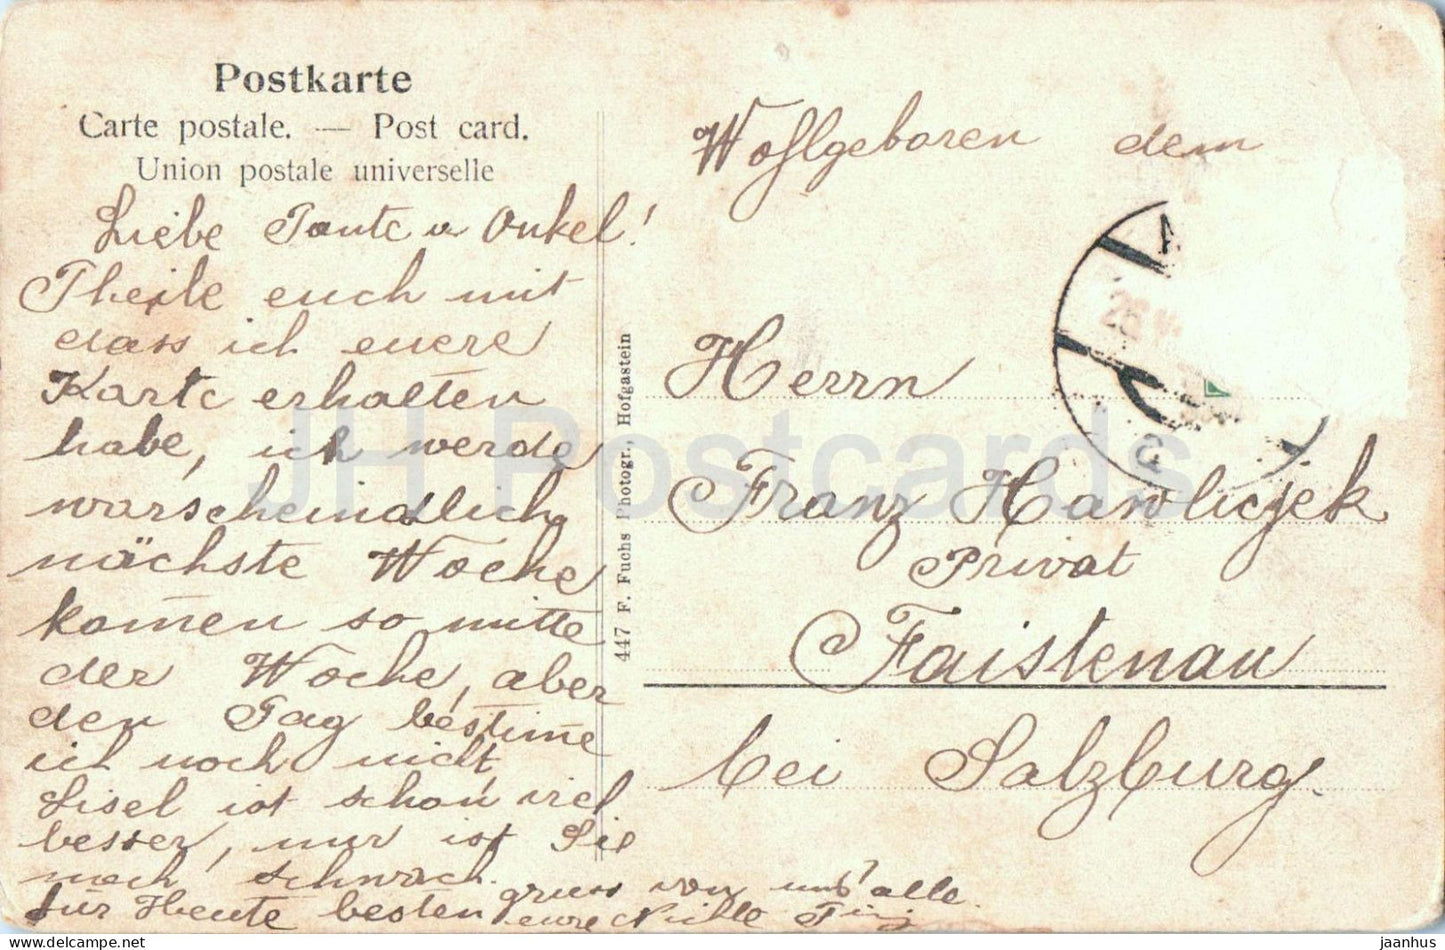 Postkarte
Carte postale. — Post card.
Union postale universelle
Liebe Tante u Onkel!
Theile euch mit
dass ich euere
Karte erhalten
habe, ich werde
warscheindlich
nächste Woche
kom̄en so mitte
der Woche, aber
den Tag bestim̄e
ich noch nicht,
Lisel ist schon viel
besser, nur ist Sie
noch schwach.
für Heute besten gruss von uns alle.
eure Nichte
447 F. Fuchs Photogr., Hofgastein
Wohlgeboren dem
Herrn
Franz Hawlicjek
Privat
Faistenau
bei Salzburg.
JH Postcards
jaanhus
delcampe.net